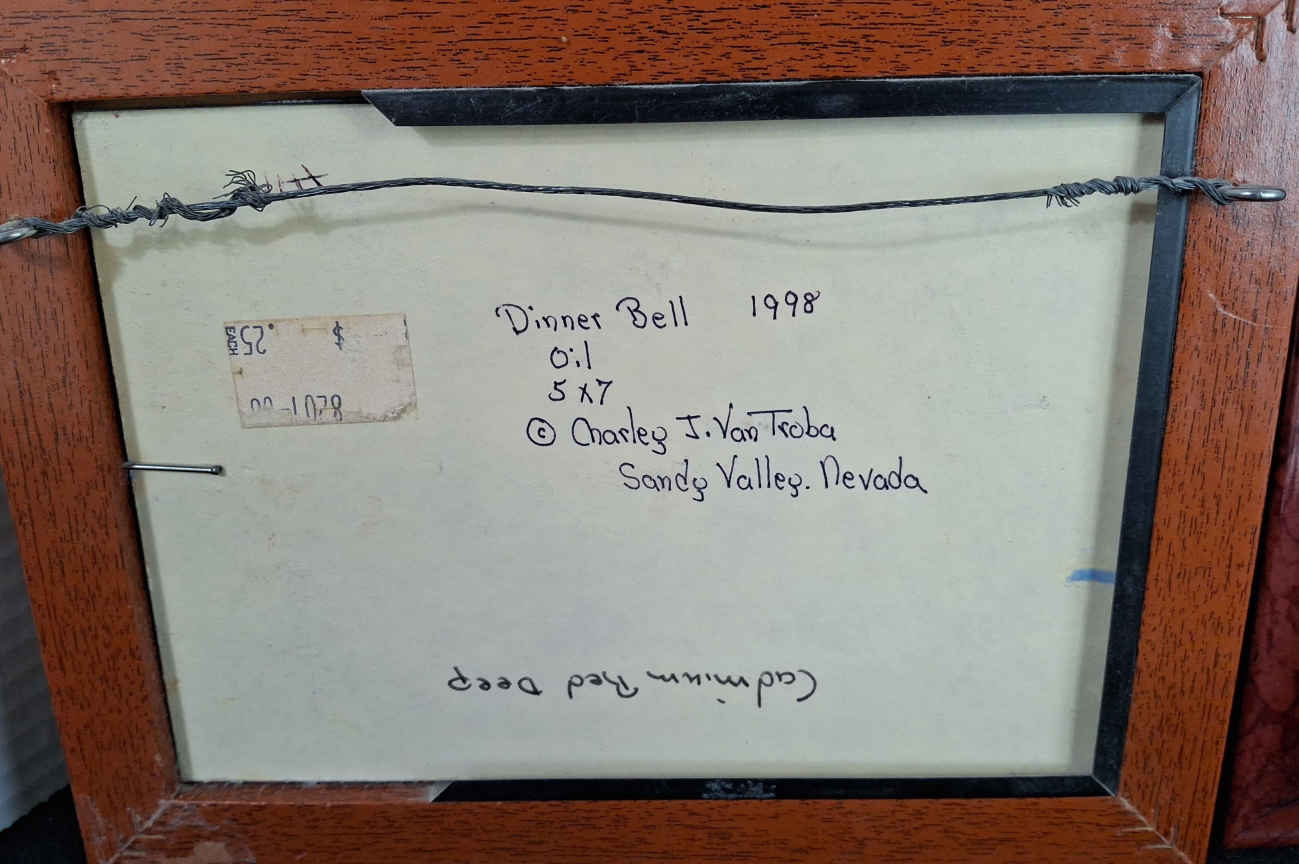 $ .25
EACH
Dinner Bell 1998
Oil
5 x 7
© Charley J. Van Troba
Sandy Valley. Nevada
Cadmium Red Deep